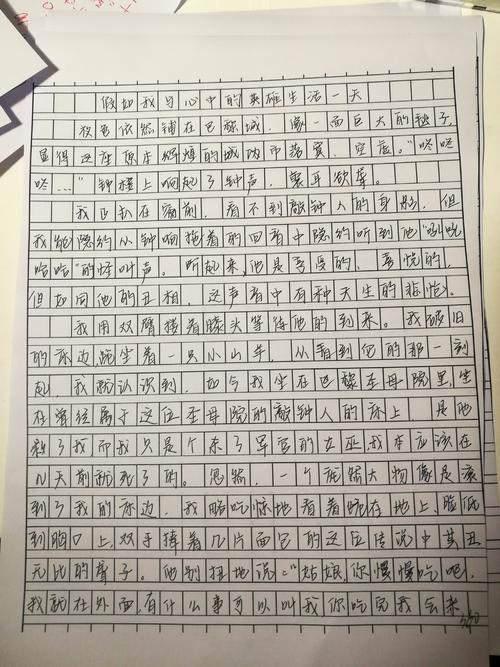 假如我与心中的英雄生活一天
夜色依然铺在巴黎城,像一面巨大的毯子,
显得这座原本辉煌的城市落寞、空虚。"咚咚
咚…"钟楼上响起了钟声,震耳欲聋。
我正趴在窗前,看不到敲钟人的身影,但
我能隐约从钟响拖着的回音中隐约听到他"
哈哈"的怪叫声。听起来,他是享受的、喜悦的,
但如同他的丑相,这声音中有种天生的悲怆。
我用双臂搂着膝头等待他的到来。我破旧
的床边,跪坐着一只小山羊,从看到它的那一刻
起,我就认识到,如今我坐在巴黎圣母院里,坐
在曾经属于这位圣母院的敲钟人的床上 是他
救了我而我只是个杀了军官的女巫,我本应该在
几天前就死了的。忽然,一个庞然大物像是滚
到了我的床边,我略吃惊地看着跪在地上、脸低
到胸口上,双手捧着几片面包的这位传说中其丑
无比的聋子。他别扭地说:"姑娘,你慢慢吃吧,
我就在外面,有什么事可以叫我你吃完我会来